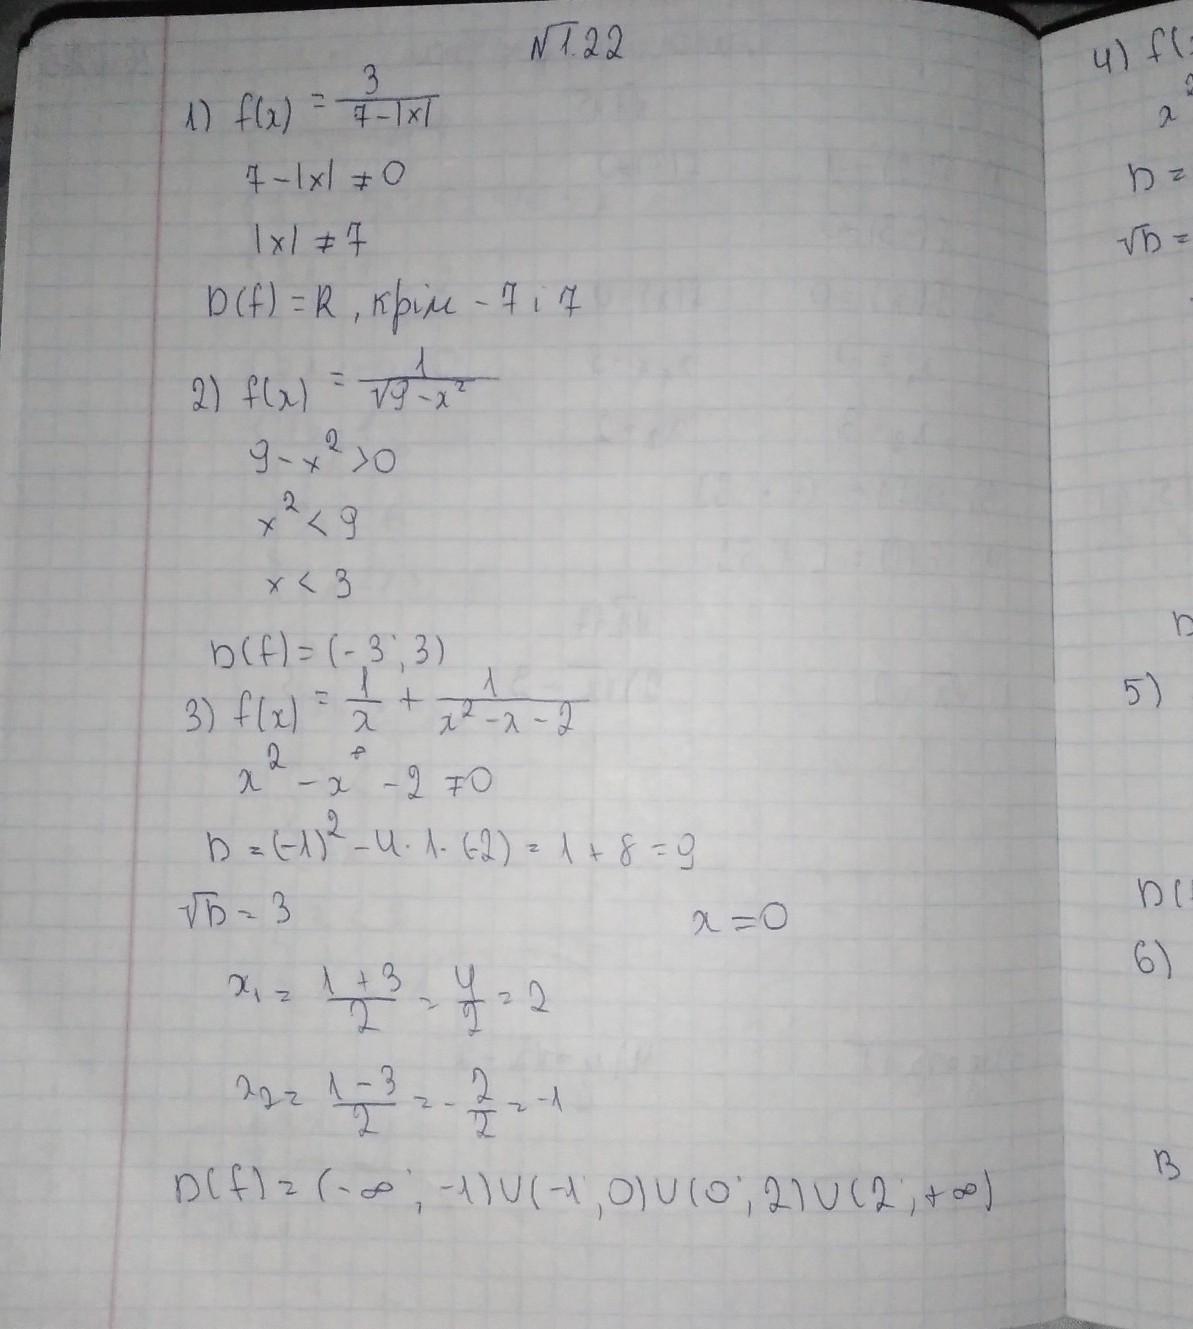 №1.22
1) f(x) = 3/(7-|x|)
7-|x| ≠ 0
|x| ≠ 7
D(f) = R, крім -7 і 7
2) f(x) = 1/√9-x²
9-x²>0
x² < 9
x < 3
D(f) = (-3; 3)
3) f(x) = 1/x + 1/(x²-x-2)
x² - x - 2 ≠0
D = (-1)² - 4·1·(-2) = 1 + 8 = 9
√D = 3
x = 0
x₁ = (1+3)/2 = 4/2 = 2
x₂ = (1-3)/2 = -2/2 = -1
D(f) = (-∞; -1)∪(-1; 0)∪(0; 2)∪(2; +∞)
4) f(
x²
D =
√D =
D
5)
D(
6)
В